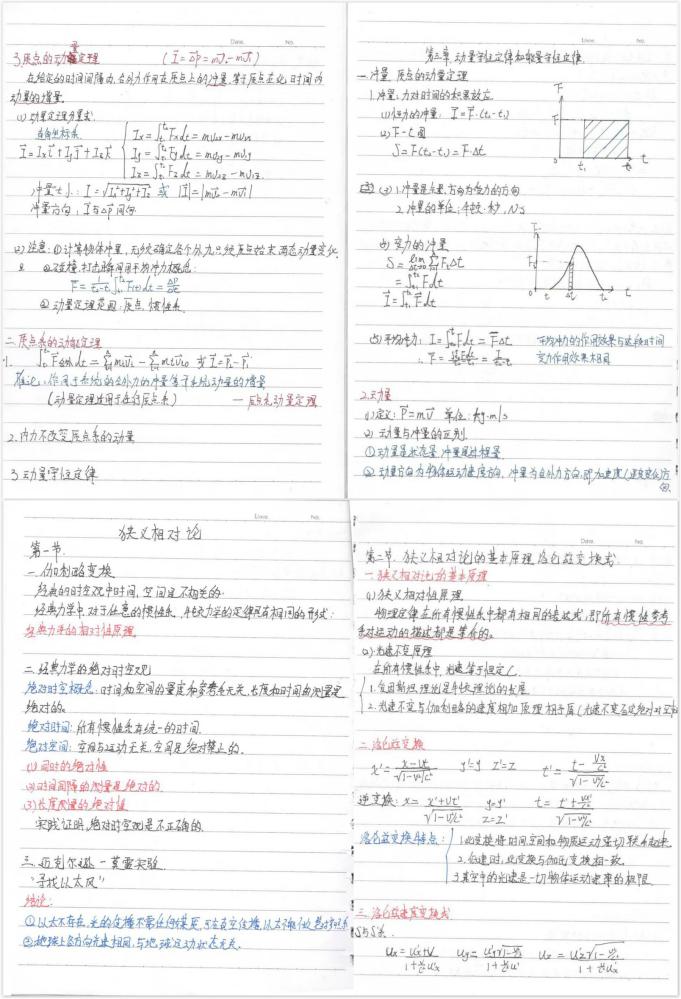 Date. No.
3.质点的动量定理 (I=ΔP=mv₂-mv₁)
在给定的时间间隔内,合外力作用在质点上的冲量,等于质点在此时间内
动量的增量.
(1)动量定理分量式
直角坐标系
I=Iₓi+Iᵧj+I_zk
Iₓ=∫Fₓdt=mv₂ₓ-mv₁ₓ
Iᵧ=∫Fᵧdt=mv₂ᵧ-mv₁ᵧ
I_z=∫F_zdt=mv₂z-mv₁z
冲量大小:I=√(Iₓ²+Iᵧ²+I_z²) 或 |I|=|mv₂-mv₁|
冲量方向:I与ΔP同向
(2)注意:①计算物体冲量,无须确定各个外力,只须质点始末两态动量变化.
②碰撞,打击瞬间用平均冲力概念:
F=1/(t₂-t₁)∫F(t)dt=ΔP/Δt
③动量定理范围:质点,惯性系.
二.质点系的动量定理
1.
推论:作用于系统的合外力的冲量等于系统动量的增量
(动量定理适用于任何质点系)
2.内力不改变质点系的动量
3.动量守恒定律
Date. No.
第三章 动量守恒定律和能量守恒定律
一.冲量 质点的动量定理
1.冲量:力对时间的积累效应
(1)恒力的冲量: I=F·(t₂-t₁)
(2)F-t图
S=F(t₂-t₁)=F·Δt
F
F
t₁ t₂ t
(3)1.冲量是矢量,方向为受力的方向
2.冲量的单位:牛顿·秒,N·s
(4)变力的冲量
S=lim ΣFᵢΔt
=∫Fdt
I=∫Fdt
F
t₁ Δt t₂ t
(5)平均冲力: I=∫Fdt=FΔt
平均冲力的作用效果与这段时间
变力作用效果相同
2.动量
(1)定义:P=mv 单位:kg·m/s
(2)动量与冲量的区别.
①动量是状态量,冲量是过程量.
②动量方向为物体运动速度方向,冲量为合外力方向,即加速度(速度变化)方
向.
Date. No.
狭义相对论
第一节.
一.伽利略变换
经典的时空观中时间,空间互不相关的.
经典力学中对于任意的惯性系,牛顿力学的定律具有相同的形式:
经典力学的相对性原理.
二.经典力学的绝对时空观
绝对时空概念:时间和空间的量度和参考系无关,长度和时间的测量是
绝对的.
绝对时间:所有惯性系有统一的时间.
绝对空间:空间与运动无关,空间是绝对静止的.
(1)同时的绝对性
(2)时间间隔的测量是绝对的.
(3)长度测量的绝对值
实践证明,绝对时空观是不正确的.
三.迈克尔逊-莫雷实验
"寻找以太风"
结论:
①以太不存在,光的传播不需任何媒质,可在真空传播,以太不能作
②地球上各方向光速相同,与地球运动状态无关.
Date. No.
第二节.狭义相对论的基本原理 洛伦兹变换式
一.狭义相对论的基本原理
(1)狭义相对性原理
物理定律在所有惯性系中都有相同的表达式,即所有惯性参考
系对运动的描述都是等价的.
(2)光速不变原理
在所有惯性系中,光速等于恒定C.
1.爱因斯坦理论是牛顿理论的发展
2.光速不变与伽利略的速度相加原理相矛盾(光速不变否定绝对时空
二.洛伦兹变换
x'=(x-vt)/√(1-v²/c²) y'=y z'=z t'=(t-vx/c²)/√(1-v²/c²)
逆变换: x=(x'+vt')/√(1-v²/c²) y=y' z=z' t=(t'+vx'/c²)/√(1-v²/c²)
洛伦兹变换特点:
1.此变换将时间,空间和物质运动紧切联系起来.
2.低速时,此变换与伽氏变换相一致.
3.真空中的光速是一切物体运动速率的极限.
三.洛伦兹速度变换式